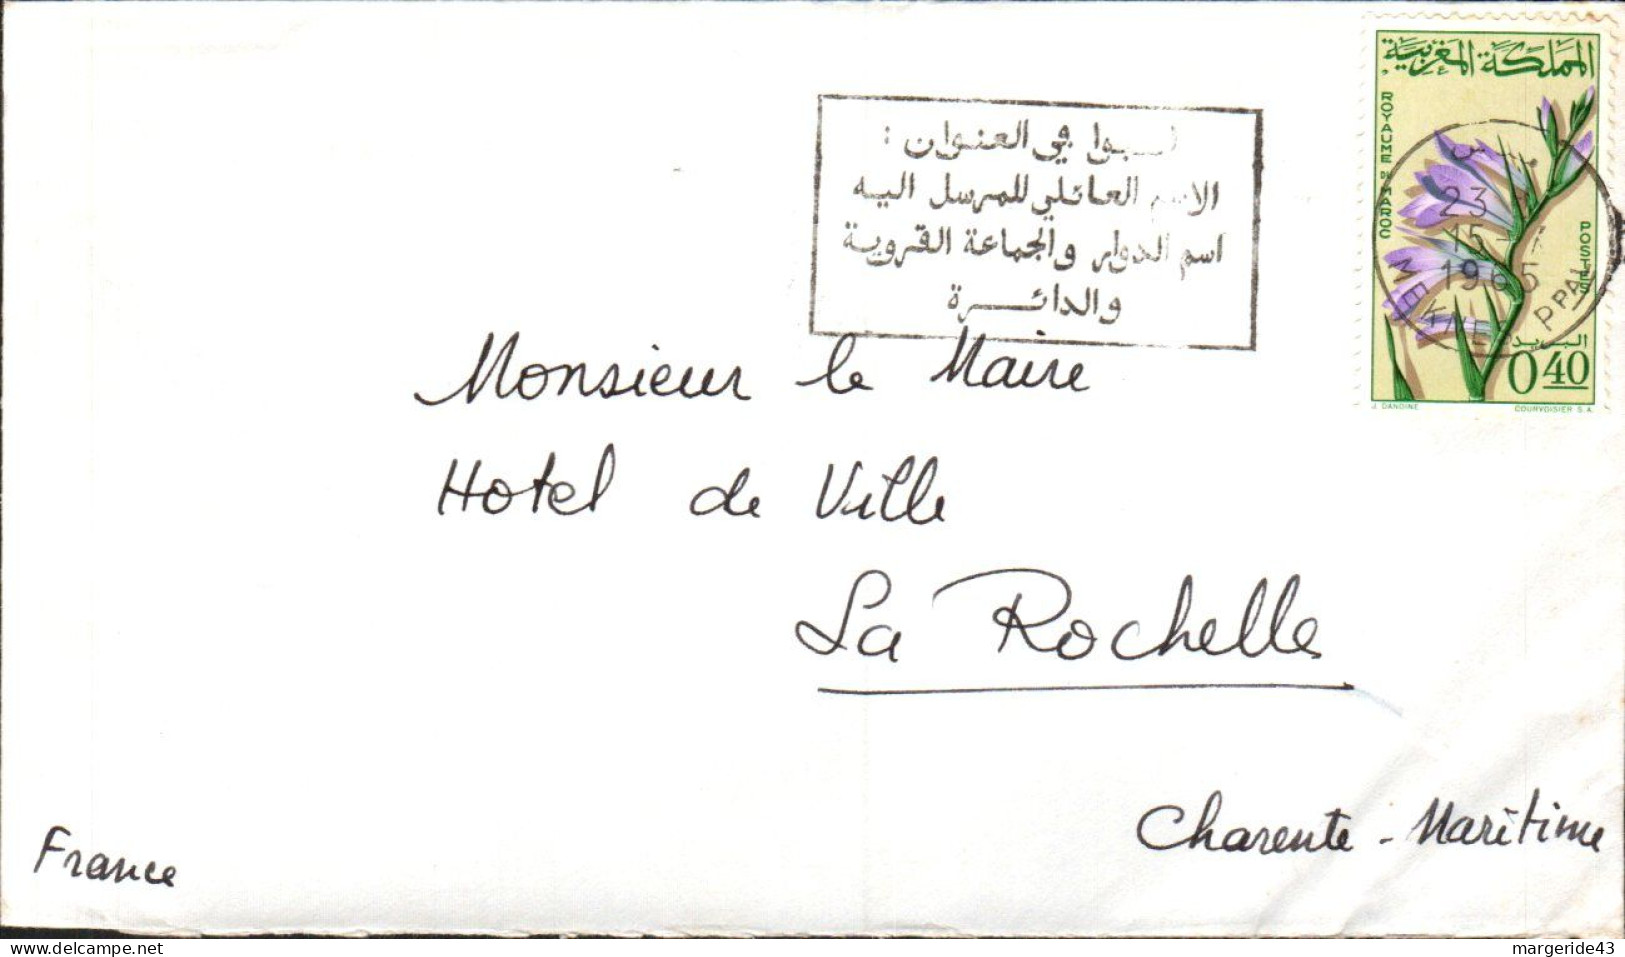 المملكة المغربية
ROYAUME DU MAROC
POSTES
البريد
0.40
J. DANDINE
COURVOISIER S.A.
23
15-
1965
MEKNES PPAL
في العنوان :
الاسم العائلي للمرسل اليه
اسم الدوار والجماعة القروية
والدائـــرة
Monsieur le Maire
Hotel de Ville
La Rochelle
Charente-Maritime
France
margeride43